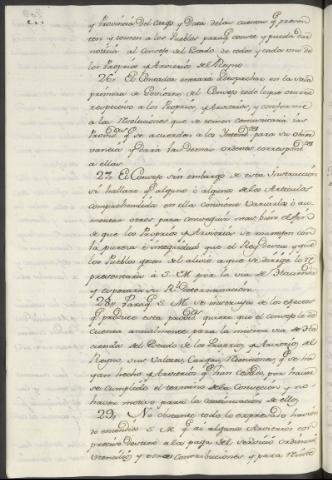 y Provincia del cargo y Data de las cuentas q. presen
ten y tomen a los Pueblos para q. conste y pueda dar
noticia al Consejo del estado de todos y cada uno de
los Propios y Arvitrios del Reyno
26. El Contador entrará a despachar en la Sala
primera de Govierno del Consejo todo lo que ocurra
respectivo a los Propios, y Arvitrios, y conforme
a las resoluciones que se tomen comunicará las
Provid.as q. se acuerden a los Intend.tes para su obser
vancia y dará las demas ordenes correspond.tes
a ellas
27. El Consejo sin embargo de esta Instruccion
si hallare q. alguno o algunos de los Articulos
comprehendidos en ella conviene variarlos o au
mentar otros para conseguir mas bien el fin
de que los Propios y Arvitrios se manejen con
la pureza e integridad que el Rey desea y que
los Pueblos gozen del alivio a que se dirige lo re
presentará a S. M. por la via de Hacienda
y esperará su R.l determinacion
28. Para q. S. M. se instruya de los efectos
q. produce esta provid.a quiere que el Consejo le dé
cuenta anualmente por la misma via de Ha
cienda del Estado de los Propios y Arvitrios del
Reyno, sus valores, Cargas, Redenciones, q. se ha
yan hecho y Arvitrios q. han cesado por haver
se cumplido el termino de la Concesion y no
haver motivo para la continuacion de ellos
29. No obstante todo lo expresado havien
do entendido S. M. q. ai algunos Arvitrios con
preciso destino a la paga del servicio ordinario
Utensilios y otras Contribuciones y para